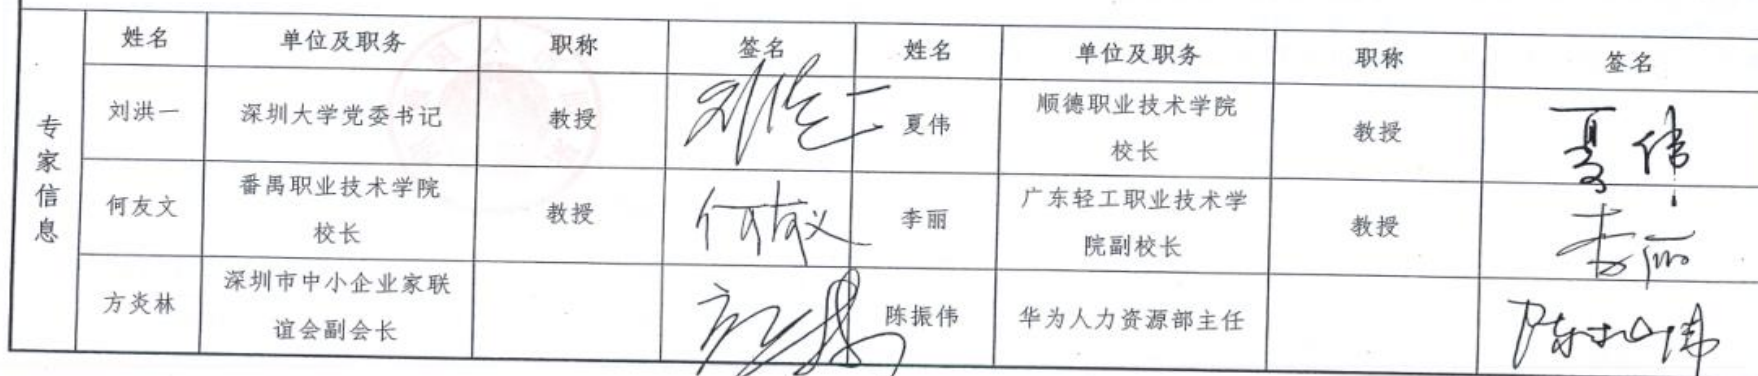 专家信息
姓名 单位及职务 职称 签名 姓名 单位及职务 职称 签名
刘洪一 深圳大学党委书记 教授 刘洪一 夏伟 顺德职业技术学院 教授 夏伟
校长
何友文 番禺职业技术学院 教授 何友文 李丽 广东轻工职业技术学 教授 李丽
校长 院副校长
方炎林 深圳市中小企业家联 陈振伟 华为人力资源部主任 陈振伟
谊会副会长